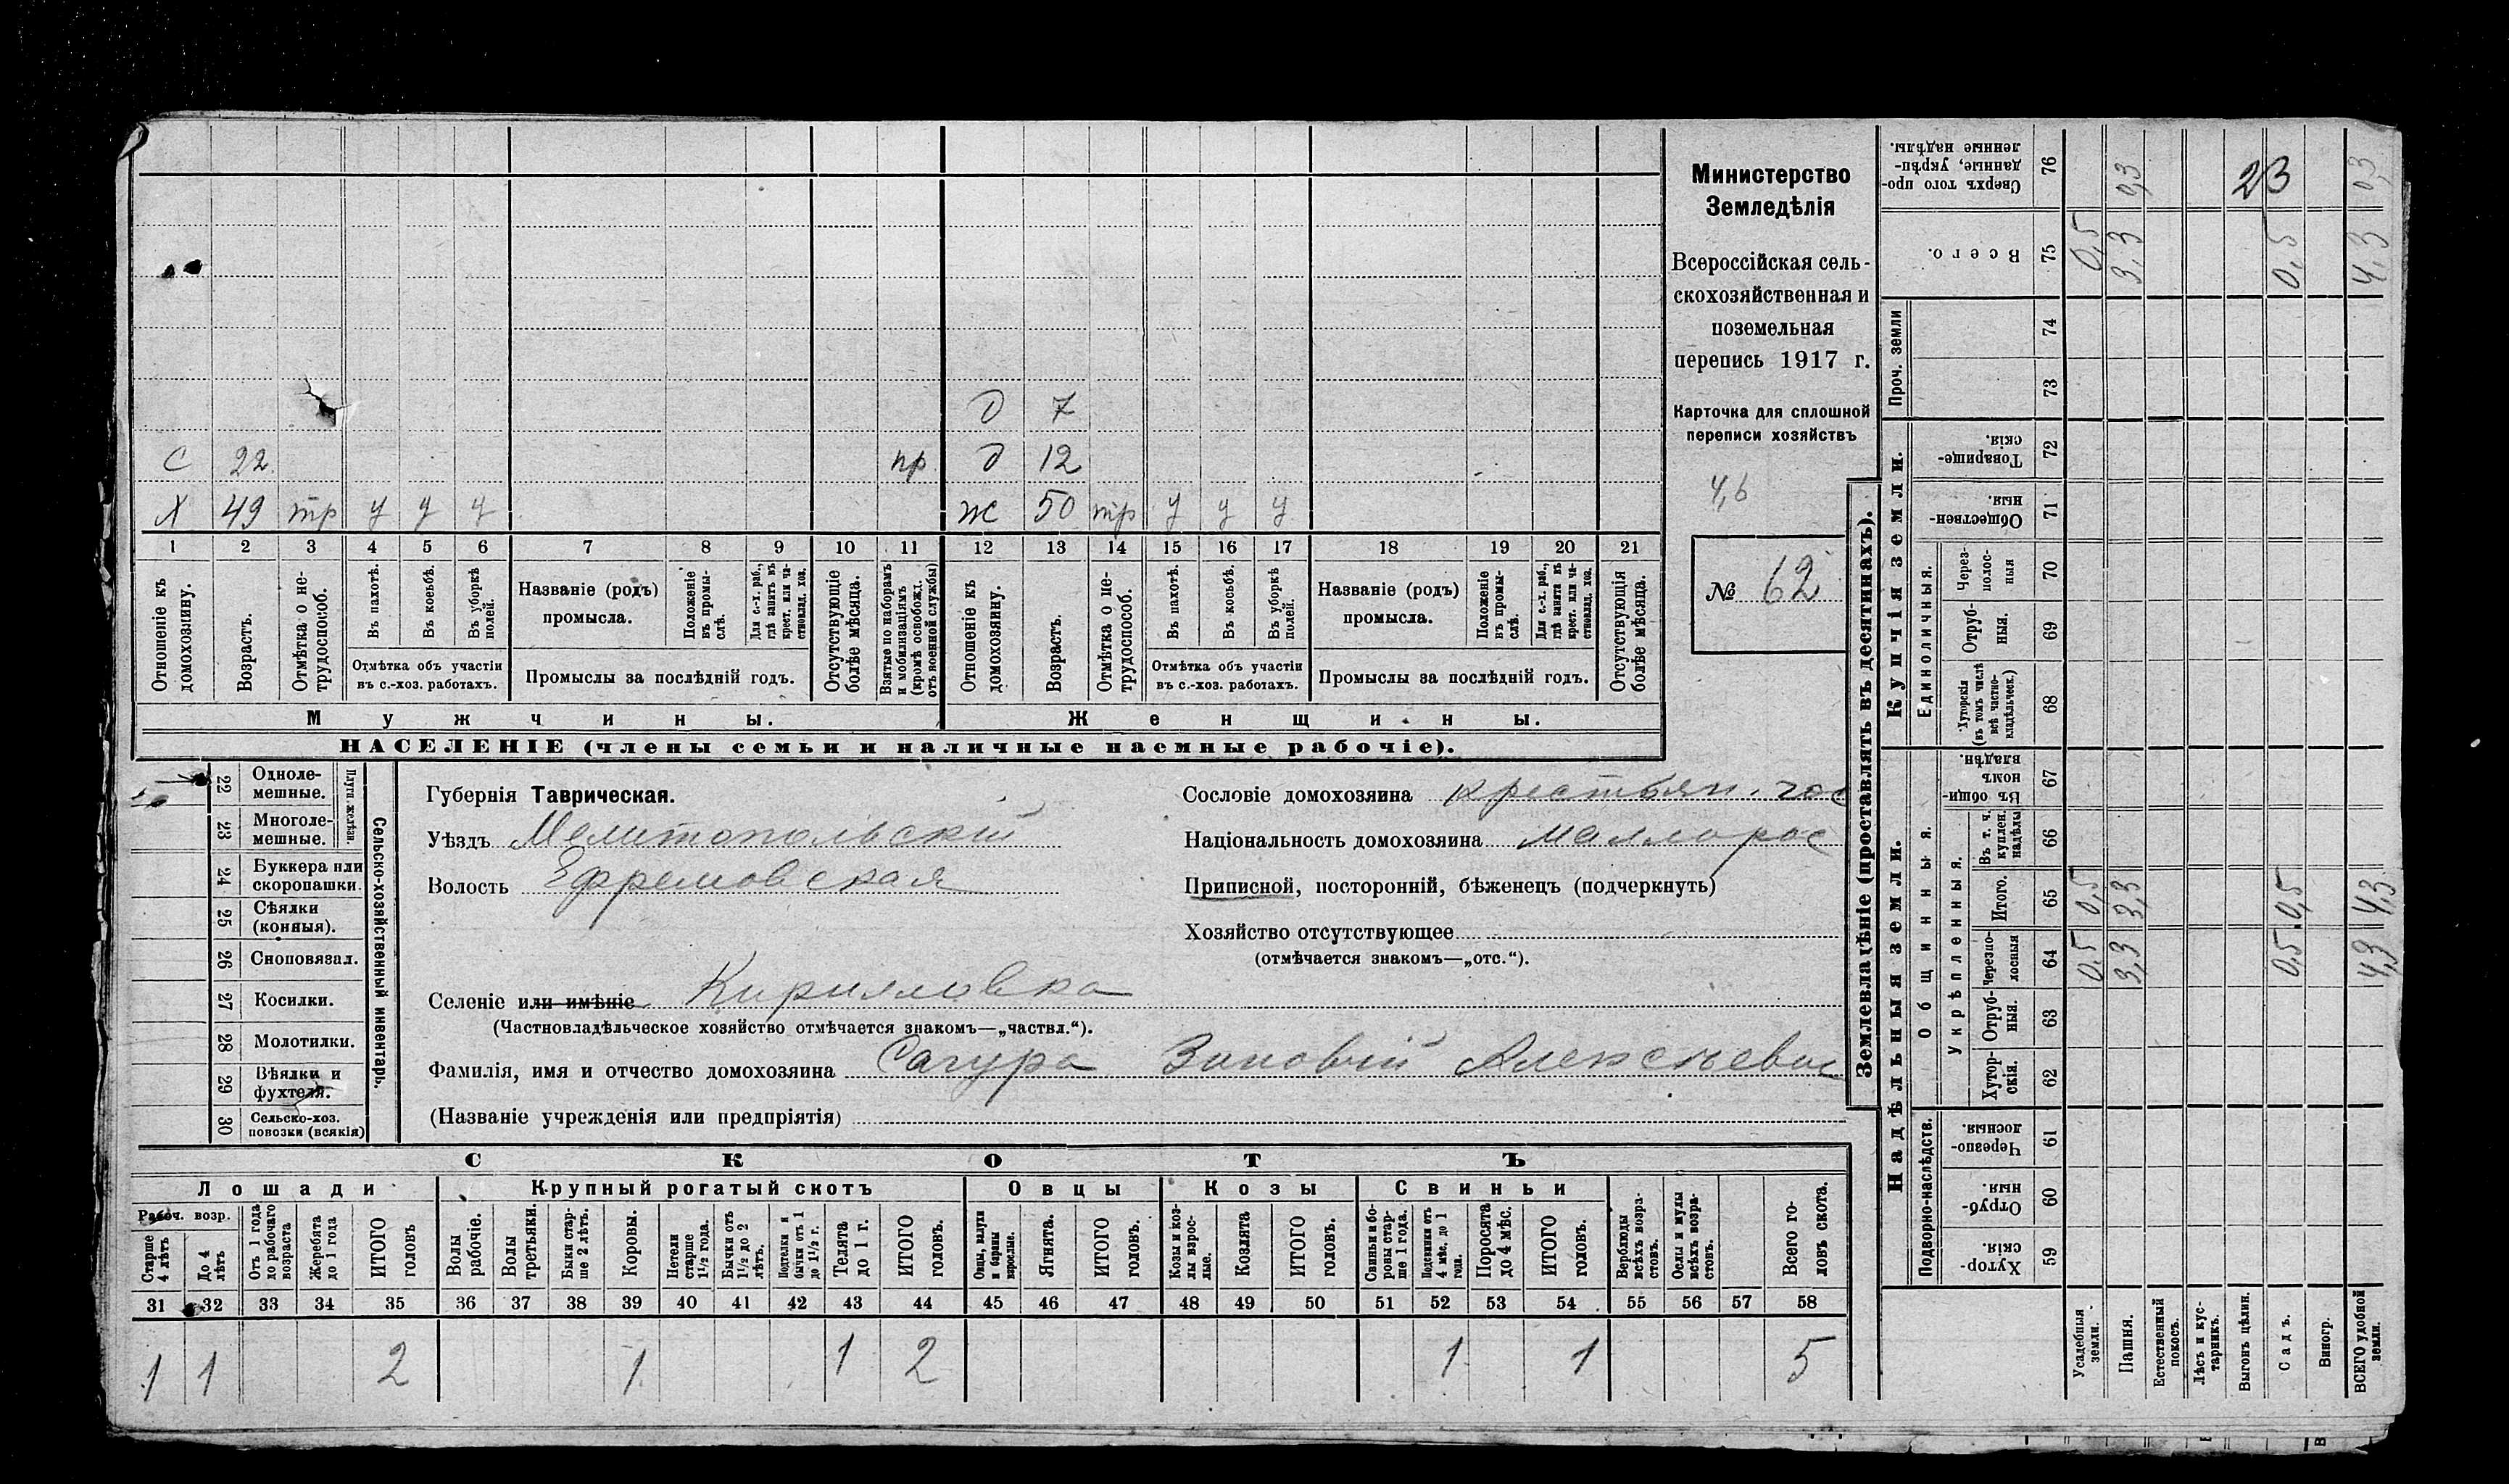 д 7
С 22 пр д 12
Х 49 тр у у у ж 50 тр у у у
1 2 3 4 5 6 7 8 9 10 11 12 13 14 15 16 17 18 19 20 21
Отношеніе къ домохозяину.
Возрастъ.
Отмѣтка о не-
трудоспособ.
Въ пахотѣ.
Въ косьбѣ.
Въ уборкѣ
полей.
Отмѣтка объ участіи
въ с.-хоз. работахъ.
Названіе (родъ)
промысла.
Положеніе
въ промы-
слѣ.
Для с.-х. раб.,
гдѣ занятъ въ
крест. или ча-
стновлад. хоз.
Промыслы за послѣдній годъ.
Отсутствующіе
болѣе мѣсяца.
Взятые по наборамъ
и мобилизаціямъ
(кромѣ освобожд.
отъ военной службы)
Отношеніе къ
домохозяину.
Возрастъ.
Отмѣтка о не-
трудоспособ.
Въ пахотѣ.
Въ косьбѣ.
Въ уборкѣ
полей.
Отмѣтка объ участіи
въ с.-хоз. работахъ.
Названіе (родъ)
промысла.
Положеніе
въ промы-
слѣ.
Для с.-х. раб.,
гдѣ занята въ
крест. или ча-
стновлад. хоз.
Промыслы за послѣдній годъ.
Отсутствующія
болѣе мѣсяца.
Мужчины.
Женщины.
НАСЕЛЕНІЕ (члены семьи и наличные наемные рабочіе).
Министерство
Земледѣлія
Всероссійская сель-
скохозяйственная и
поземельная
перепись 1917 г.
Карточка для сплошной
переписи хозяйствъ
№ 62
22 Одноле-
мешные.
23 Многоле-
мешные.
Плуги желѣзн.
24 Буккера или
скоропашки.
25 Сѣялки
(конныя).
26 Сноповязал.
27 Косилки.
28 Молотилки.
29 Вѣялки и
фухтеля.
30 Сельско-хоз.
повозки (всякія)
Сельско-хозяйственный инвентарь.
Губернія Таврическая.
Уѣздъ Мелитопольскій
Волость Ефремовская
Селеніе или имѣніе Кирилловка
(Частновладѣльческое хозяйство отмѣчается знакомъ—„частвл.“).
Фамилія, имя и отчество домохозяина Сагура Зиновій Алексѣевич
(Названіе учрежденія или предпріятія)
Сословіе домохозяина крестьян. гос
Національность домохозяина маллорос
Приписной, посторонній, бѣженецъ (подчеркнуть)
Хозяйство отсутствующее
(отмѣчается знакомъ—„отс.“).
СКОТЪ
Лошади Крупный рогатый скотъ Овцы Козы Свиньи
Рабоч. возр.
Старше
4 лѣтъ
До 4
лѣтъ
Отъ 1 года
до рабочаго
возраста
Жеребята
до 1 года
ИТОГО
головъ
Волы
рабочіе.
Волы
третьяки.
Быки стар-
ше 2 лѣтъ.
Коровы.
Нетели
старше
1½ года.
Бычки отъ
1½ до 2
лѣтъ.
Подтелки и
бычки отъ 1
до 1½ г.
Телята
до 1 г.
ИТОГО
головъ.
Овцы, валухи
и бараны
взрослые.
Ягнята.
ИТОГО
головъ.
Козы и коз-
лы взрос-
лые.
Козлята
ИТОГО
головъ.
Свиньи и бо-
ровы стар-
ше 1 года.
Подсвинки отъ
4 мѣс. до 1
года.
Поросята
до 4 мѣс.
ИТОГО
головъ.
Верблюды
всѣхъ возра-
стовъ.
Ослы и мулы
всѣхъ возра-
стовъ.
Всего го-
ловъ скота.
31 32 33 34 35 36 37 38 39 40 41 42 43 44 45 46 47 48 49 50 51 52 53 54 55 56 57 58
1 1 2 1 1 2 1 1 5
Землевладѣніе (проставлять въ десятинахъ).
Сверхъ того про-
данные, укрѣп-
ленные надѣлы.
76 0,3 23 0,3
Всего.
75 0,5 3,3 0,5 4,3
Проч. земли
74
73
Купчія земли.
Товарище-
скія.
72
Обществен-
ныя.
71
Единоличныя.
Через-
полос-
ныя
70
Отруб-
ныя.
69
Хуторскія
(въ томъ числѣ
всѣ частно-
владѣльческ.)
68
Надѣльныя земли.
Общинныя.
Въ общи-
номъ
владѣн.
67
Укрѣпленныя.
Въ т. ч.
куплен.
надѣлы
66
Итого.
65 0,5 3,3 0,5 4,3
Черезпо-
лосныя
64 0,5 3,3 0,5 4,3
Отруб-
ныя.
63
Хутор-
скія.
62
Подворно-наслѣдств.
Черезпо-
лосныя.
61
Отруб-
ныя.
60
Хутор-
скія.
59
Усадебныя
земли.
Пашня.
Естественный
покосъ.
Лѣсъ и кус-
тарникъ.
Выгонъ цѣлин.
Садъ.
Виногр.
ВСЕГО удобной
земли.